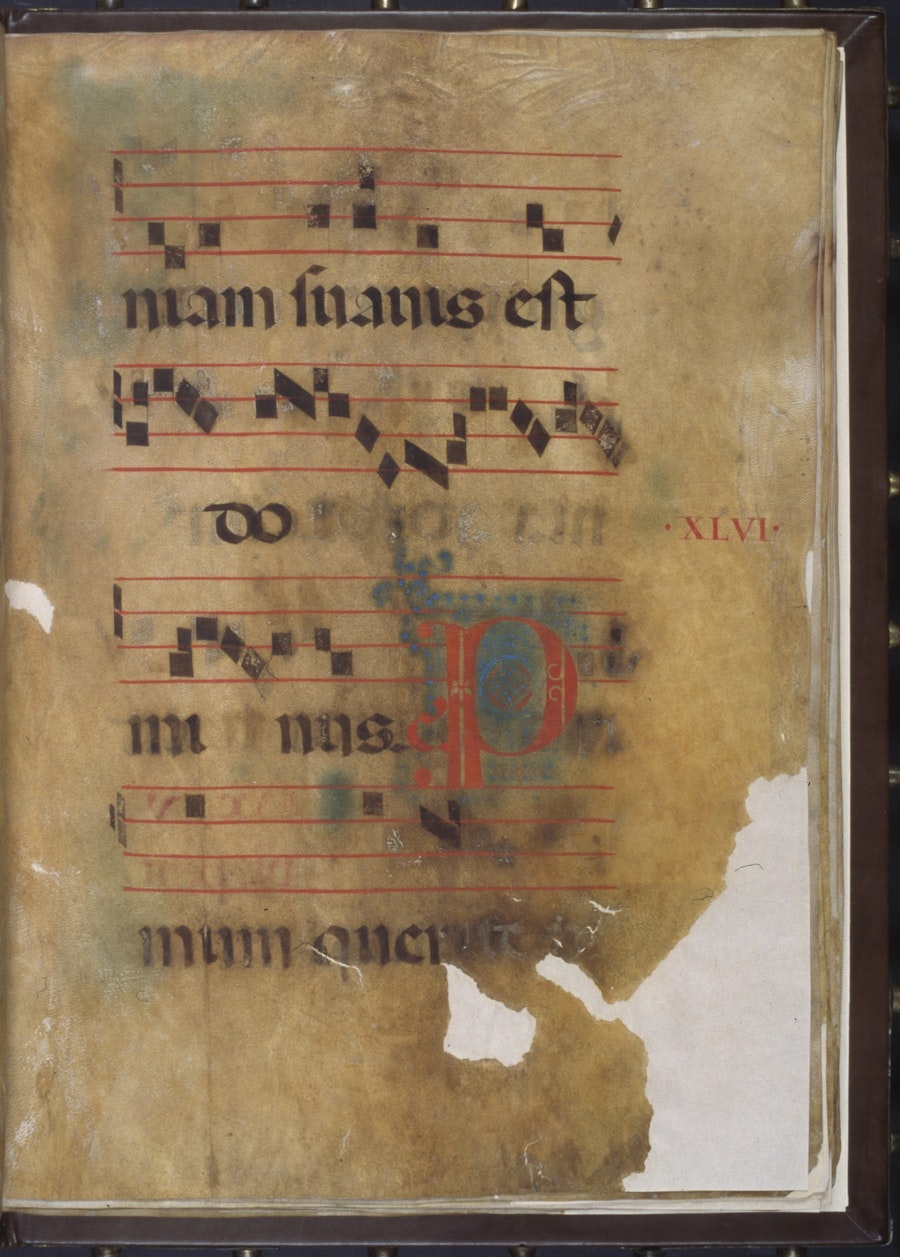 niam suauis est
do
·XLVI·
mi nus. P
mum querite